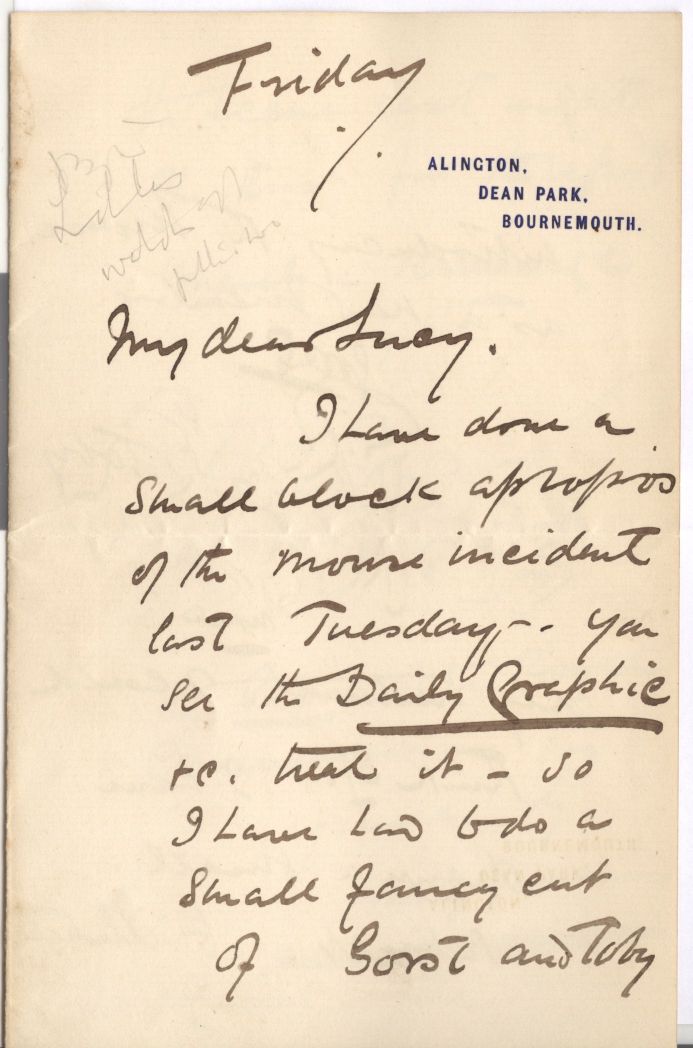 Friday
ALINGTON,
DEAN PARK,
BOURNEMOUTH.
My dear Lucy.
I have done a
small block apropos
of the mouse incident
last Tuesday - . you
see the Daily Graphic
&c. treat it - so
I have had to do a
small fancy cut
of Gorst and Toby